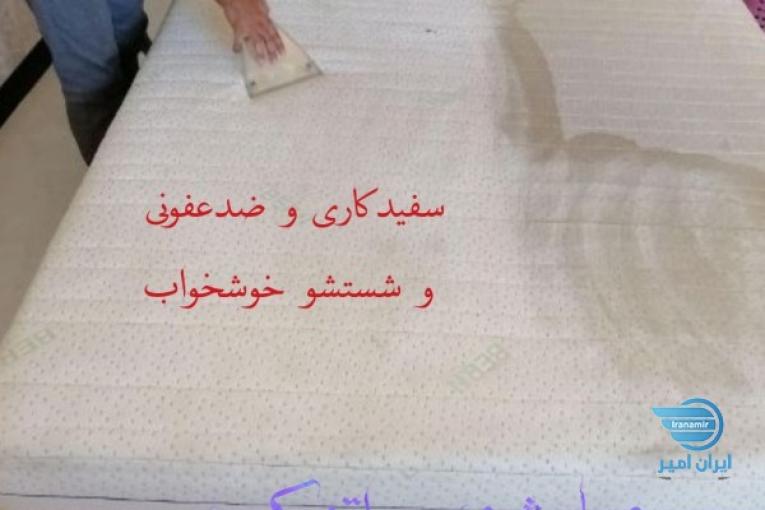 سفیدکاری و ضدعفونی
و شستشو خوشخواب
BERN
Iranamir
ایران امیر